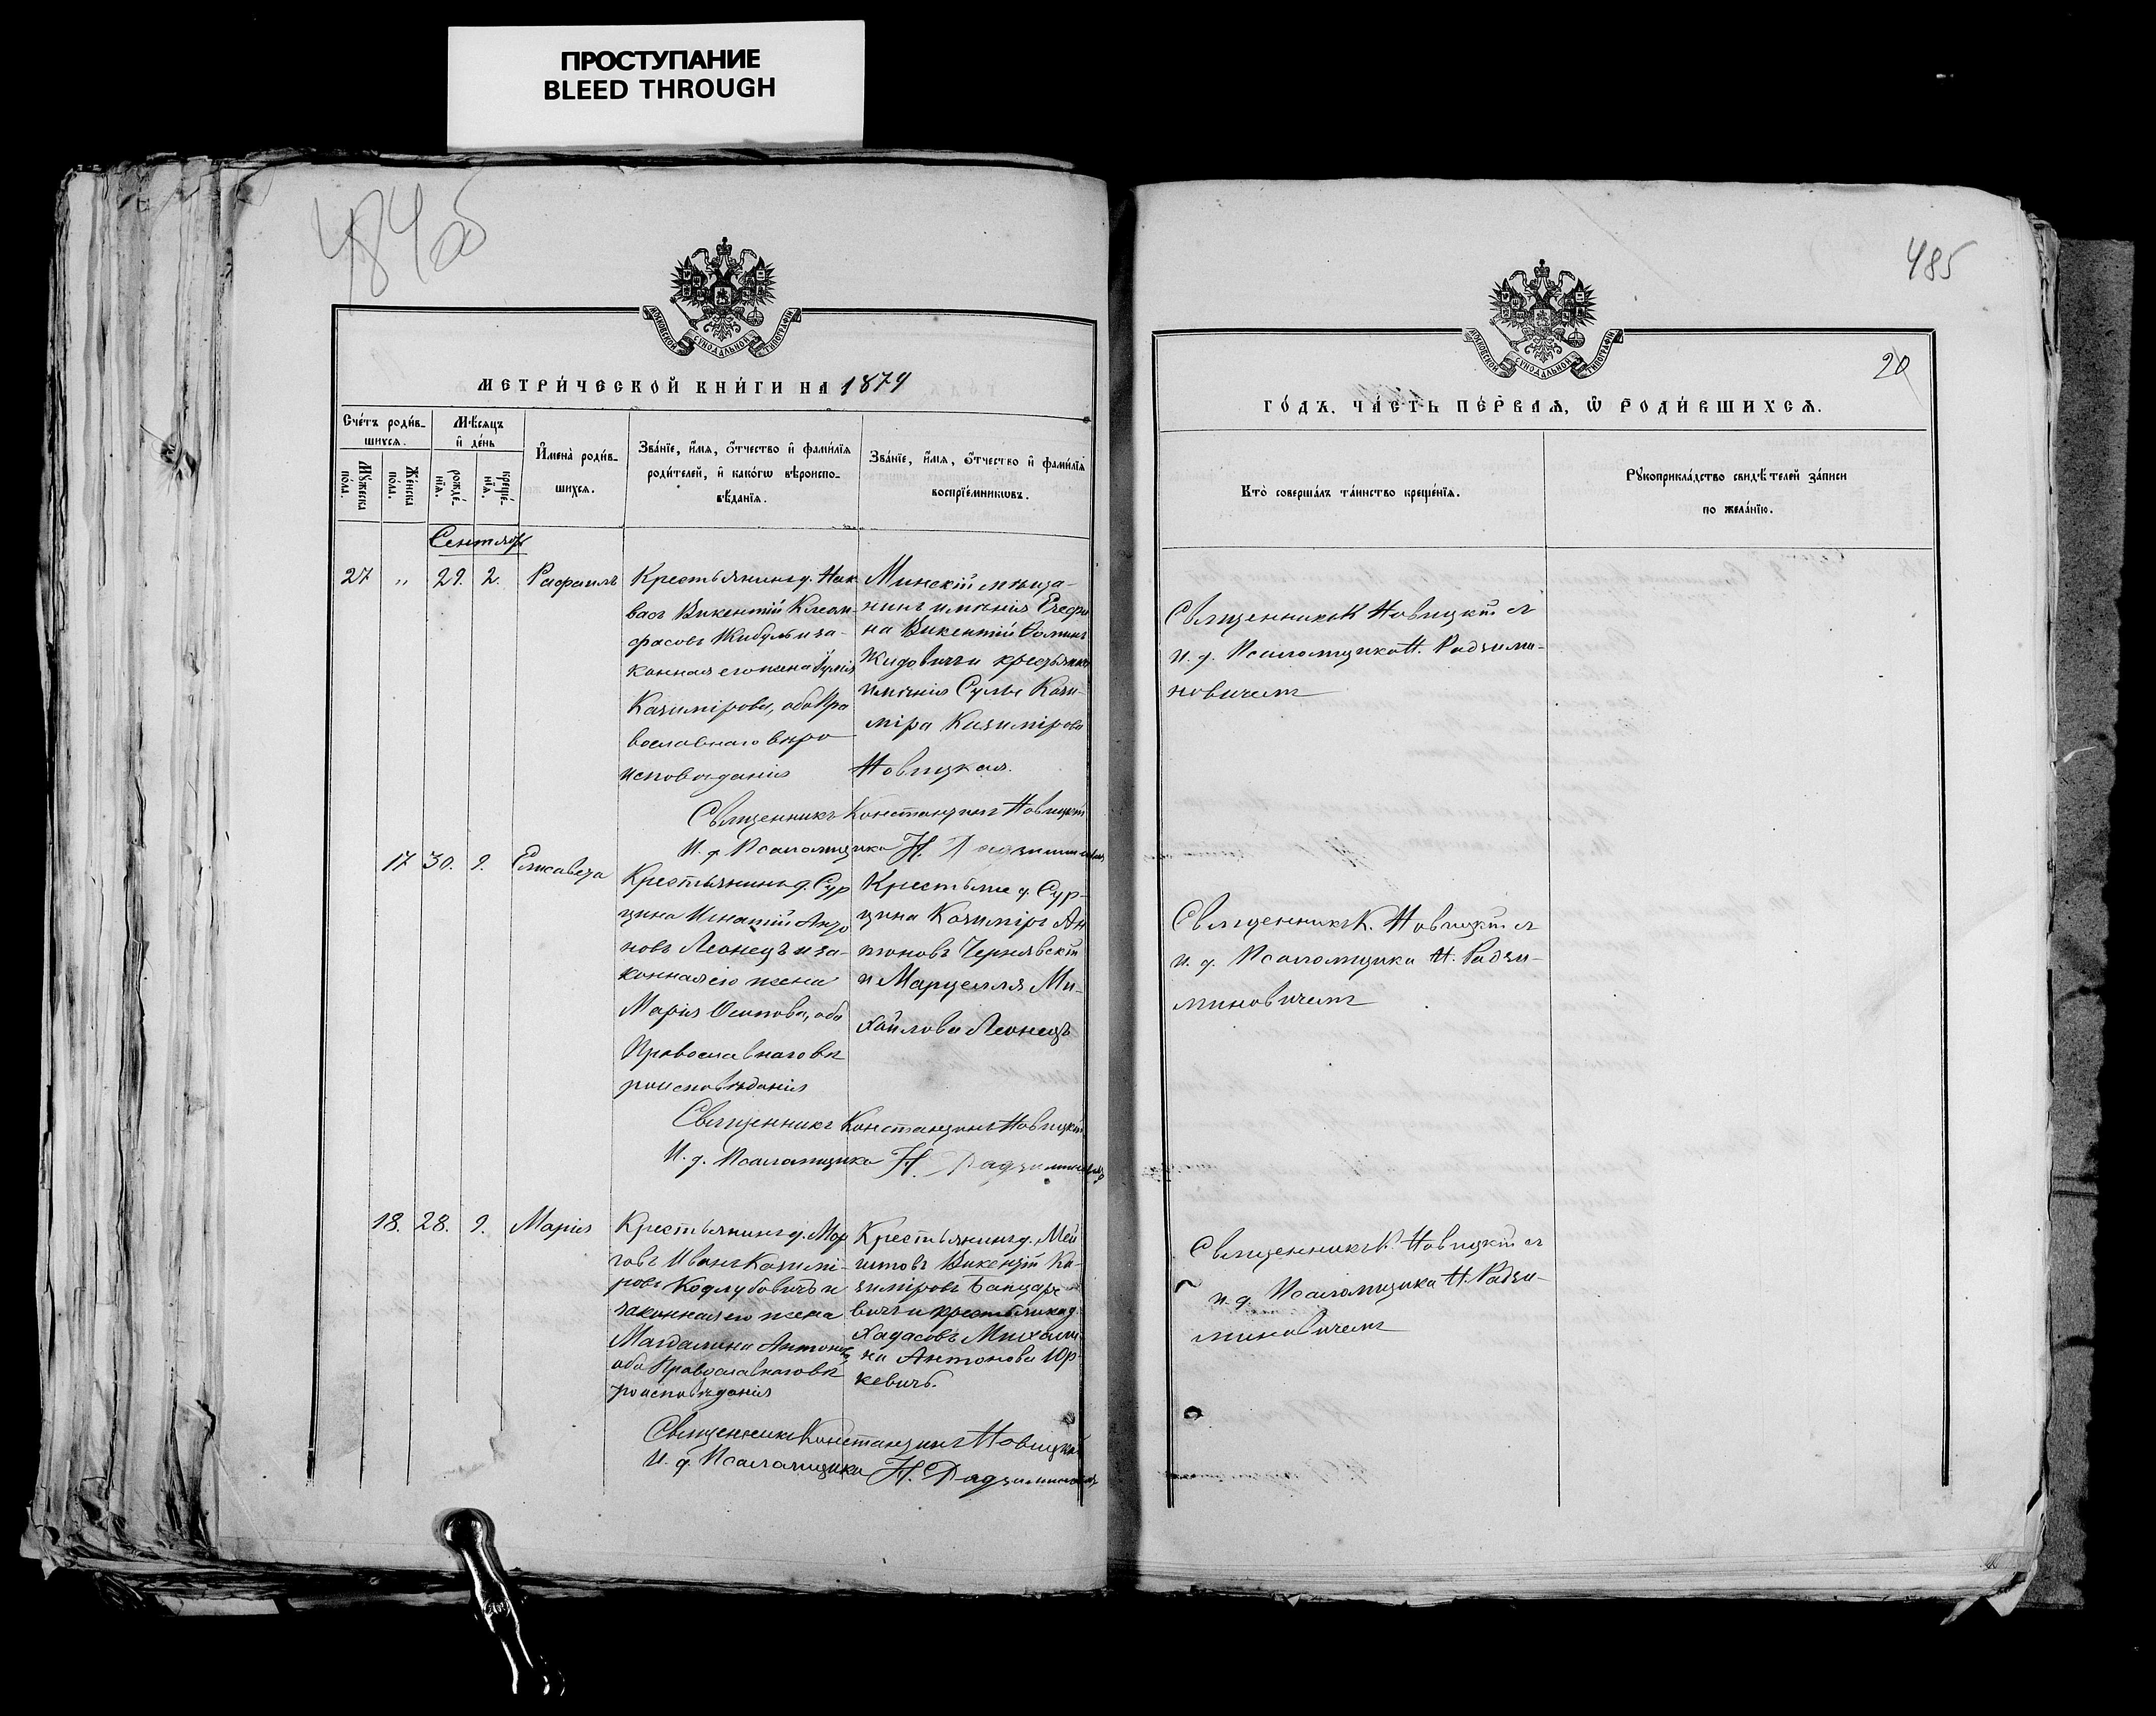 ПРОСТУПАНИЕ
BLEED THROUGH
484об
МОСКОВСКОЙ СУНОДАЛЬНОЙ ТИПОГРАФІИ
МЕТРИ́ЧЕСКОЙ КНИ́ГИ НА 1874
Сче́тъ роди́в-
шихся.
Мѣ́сяцъ
и҆ де́нь
Му́жеска по́ла.
Же́нска по́ла.
рожде́-нїѧ.
креще́-нїѧ.
И҆мена̀ роди́в-
шихсѧ.
Зва́нїе, и҆́мѧ, ѻ҆́тчество и҆ фами́лїѧ
роди́телей, и҆ како́гѡ вѣроиспо-
вѣ́данїѧ.
Зва́нїе, и҆́мѧ, ѻ҆́тчество и҆ фами́лїѧ
воспрїе́мникѡвъ.
Сентябр
27 " 29. 2. Рафаилъ
Крестьянинъ д.
васъ Викентій
фасовъ и за-
конная его жена
Казимірова, оба Пра
вославнаго вѣро
исповѣданія
Минскій мѣща-
нинъ имѣнія
на Викентій
и крестьянка
имѣнія Сулы Кази-
міра Казимірова
Новицкая.
Священникъ Константинъ Новицкій
И. д. Псаломщика Н. Радзиминовичъ
17 30. 9. Елисавета
Крестьянинъ д. Сур
щина Игнатій Анто
новъ Леонецъ и за-
конная его жена
Марія Осипова, оба
Православнаго вѣ
роисповѣданія
Крестьяне д. Сур-
щина Казиміръ Ан
тоновъ Чернявскій
и Марцелля Ми-
хайлова Леонецъ
Священникъ Константинъ Новицкій
И. д. Псаломщика Н. Радзиминовичъ
18. 28. 9. Марія
Крестьянинъ д. Мор
говъ Иванъ Казимі-
ровъ Кодлубовичъ и
законная его жена
Магдалина Антонова,
оба Православнаго вѣ
роисповѣданія
Крестьянинъ д. Мей
штовъ Викентій Ка-
зиміровъ Банцаре
вичъ и крестьянка д.
Хадасовъ Михали-
на Антонова Юр-
кевичъ.
Священникъ Константинъ Новицкій
И. д. Псаломщика Н. Радзиминовичъ
485
МОСКОВСКОЙ СУНОДАЛЬНОЙ ТИПОГРАФІИ
20
ГО́ДЪ, ЧА́СТЬ ПЕ́РВАѦ, Ѡ҆ РОДИ́ВШИХСѦ.
Кто̀ соверша́лъ та́инство креще́нїѧ.
Рꙋкоприкла́дство свидѣ́телей за́писи
по жела́нїю.
Священникъ К Новицкій съ
и. д. Псаломщика Н. Радзими-
новичемъ
Священникъ К. Новицкій съ
и. д. Псаломщика Н. Радзи-
миновичемъ
Священникъ К. Новицкій съ
и. д. Псаломщика Н. Радзи-
миновичемъ